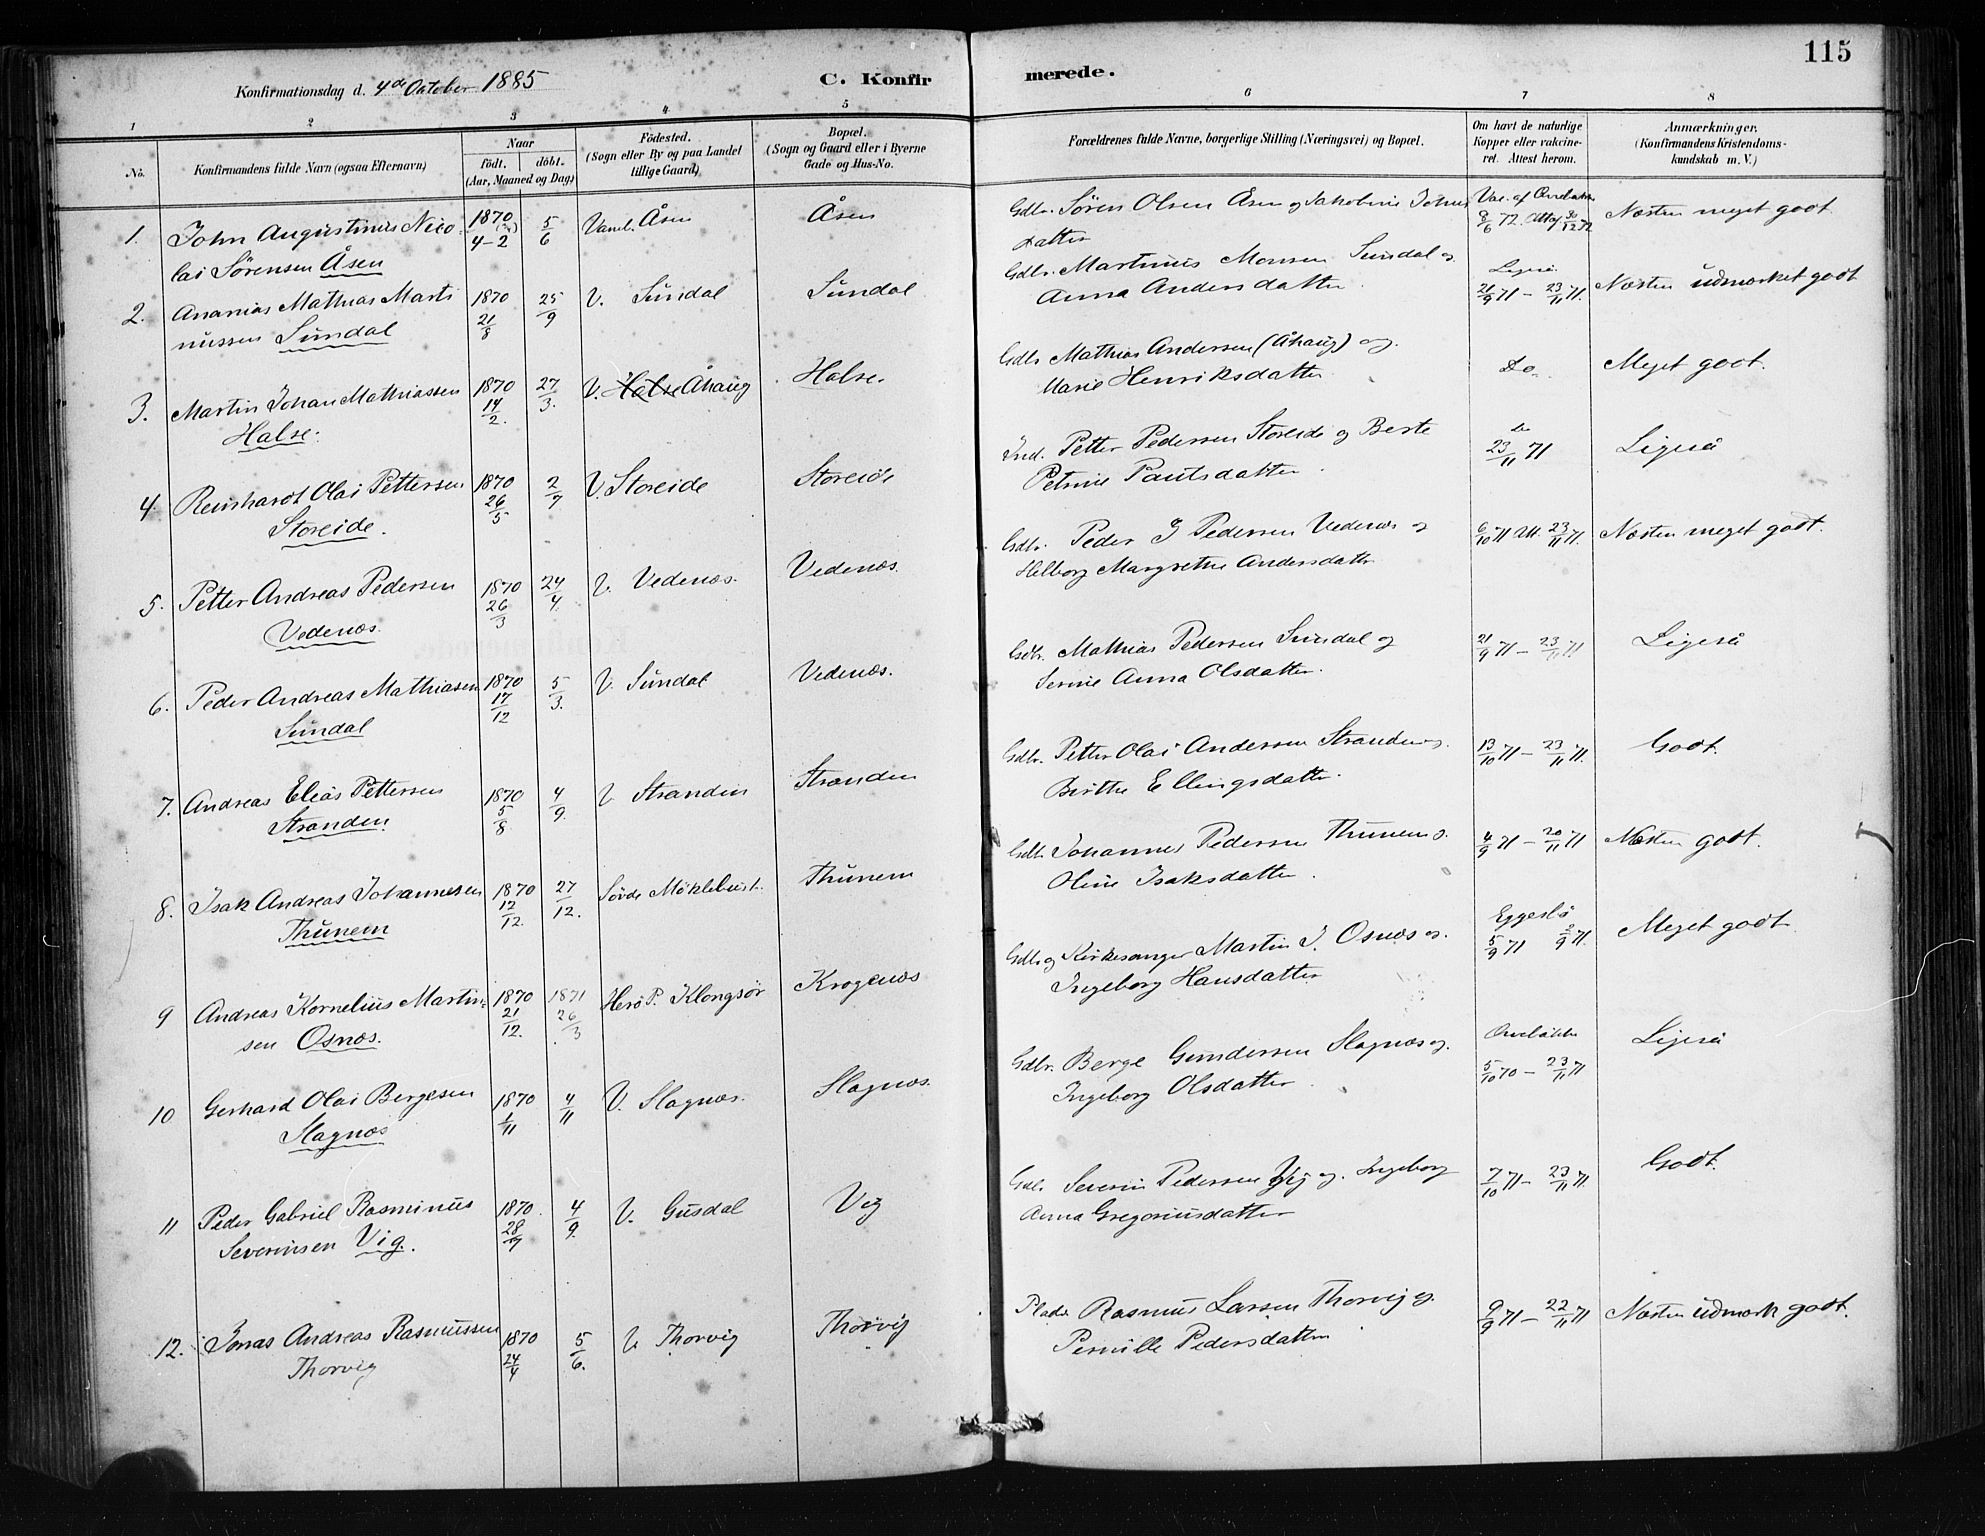 115
Konfirmationsdag d. 4de October 1885
C. Konfir
merede.
1 2 3 4 5 6 7 8
No.
Konfirmandens fulde Navn (ogsaa Efternavn)
Naar
födt. döbt.
(Aar, Maaned og Dag)
Födested.
(Sogn eller By og paa Landet
tillige Gaard)
Bopæl.
(Sogn og Gaard eller i Byerne
Gade og Hus-No.
Forældrenes fulde Navne, borgerlige Stilling (Næringsvei) og Bopæl.
Om havt de naturlige
Kopper eller vakcine-
ret. Attest herom.
Anmærkninger.
(Konfirmandens Kristendoms-
kundskab m. V.)
1. John Augustinus Nico-
lai Sørensen Åsen
1870 4-2 5/6 Vanel. Åsen Åsen
Gdbr. Sören Olsen Åsen og Jakobine Johns
datter
Vac. af
Næsten meget godt
2. Ananias Mathias Marti
nussen Sundal
1870 21/8 25/9 V. Sundal Sundal
Gdbr. Martinus Monsen Sundal og
Anna Andersdatter
Ligeså
21/9 71 – 23/11 71.
Næsten udmærket godt
3. Martin Johan Mathiassen
Halse.
1870 14/2. 27/3. V. Halse Åhaug Halse.
Gdbr Mathias Andersen (Åhaug) og
Marie Henriksdatter
Do.
Meget godt.
4. Reinhardt Olai Pettersen
Storeide.
1870 26/5 2/7 V. Storeide Storeide
Ind. Petter Pedersen Storeide og Berte
Petrine Paulsdatter.
Do
23/11 71
Ligeså
5. Petter Andreas Pedersen
Vedenæs.
1870 26/3 24/4. V. Vedenæs. Vedenæs.
Gdbr. Peder J Pedersen Vedenæs og
Helborg Margrethe Andersdatter
6/10 71 Att. 23/11 71.
Næsten meget godt.
6. Peder Andreas Mathiasen
Sundal
1870 17/12 5/3. V. Sundal Vedenæs.
Gdbr. Mathias Pedersen Sundal og
Serine Anna Olsdatter.
21/9 71 – 23/11 71.
Ligeså
7. Andreas Elias Pettersen
Stranden.
1870 5/8 4/9. V. Stranden Stranden
Gdbr. Petter Olai Andersen Stranden og
Birthe Ellingsdatter.
13/10 71 – 23/11 71.
Godt.
8. Isak Andreas Johannesen
Thunem
1870 12/12. 27/12. Søvde Möklebust. Thunem
Gdbr. Johannes Pedersen Thunem og
Oline Isaksdatter.
4/9 71 – 20/11 71
Næsten godt.
9 Andreas Kornelius Martin-
sen Osnæs.
1870 21/12. 1871 26/3 Herö P. Klongsør Krogenæs
Gdbr og Kirkesanger Martin J. Osnæs og
Ingeborg Hansdatter
5/9 71 9/9 71.
Meget godt
10 Gerhard Olai Bergesen
Slagnæs
1870 1/11 4/11 V. Slagnæs. Slagnæs.
Gdbr. Berge Gundersen Slagnæs og
Ingeborg Olsdatter.
5/10 70 – 23/11 71
Ligeså
11 Peder Gabriel Rasminus
Severinsen Vig.
1870. 28/7 4/9. V. Gusdal Vig
Gdbr. Severin Pedersen Vig og Ingeborg
Anna Gregoriusdatter
7/10 71 – 23/11 71.
Godt.
12. Jonas Andreas Rasmussen
Thorvig
1870 24/4 5/6. V. Thorvig Thorvig
Pladsr. Rasmus Larsen Thorvig og
Pernille Pedersdatter
9/9 71 – 22/11 71
Næsten udmærk godt.